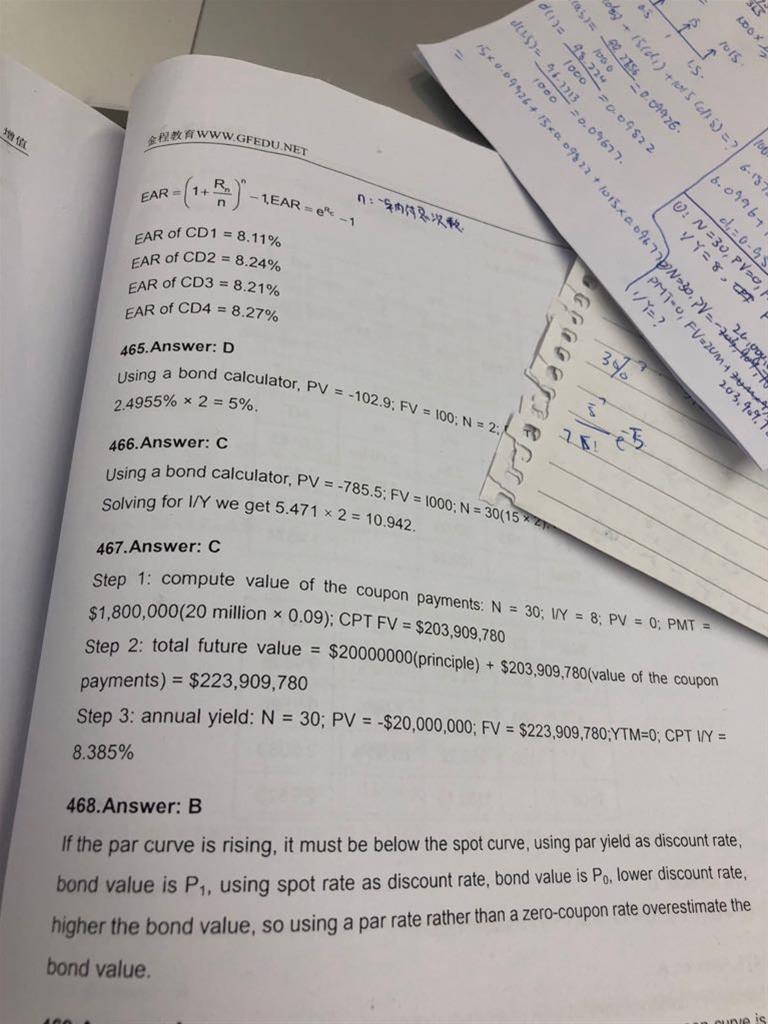 增值
金程教育WWW.GFEDU.NET
EAR = (1 + Rn/n)^n − 1, EAR = e^Rc − 1
n: 年内付息次数.
EAR of CD1 = 8.11%
EAR of CD2 = 8.24%
EAR of CD3 = 8.21%
EAR of CD4 = 8.27%
465.Answer: D
Using a bond calculator, PV = -102.9; FV = I00; N = 2;
2.4955% × 2 = 5%.
466.Answer: C
Using a bond calculator, PV = -785.5; FV = I000; N = 30(15 × 2).
Solving for I/Y we get 5.471 × 2 = 10.942.
467.Answer: C
Step 1: compute value of the coupon payments: N = 30; I/Y = 8; PV = 0; PMT =
$1,800,000(20 million × 0.09); CPT FV = $203,909,780
Step 2: total future value = $20000000(principle) + $203,909,780(value of the coupon
payments) = $223,909,780
Step 3: annual yield: N = 30; PV = -$20,000,000; FV = $223,909,780;YTM=0; CPT I/Y =
8.385%
468.Answer: B
If the par curve is rising, it must be below the spot curve, using par yield as discount rate,
bond value is P₁, using spot rate as discount rate, bond value is P₀, lower discount rate,
higher the bond value, so using a par rate rather than a zero-coupon rate overestimate the
bond value.
curve is
0.5 1 1.5
15 15 1015.
d(1) = 98.224/1000 = 0.09822
= 0.09926.
d(1.5) = /1000 = 0.09677.
= 15×0.09926 + 15×0.09822 + 1015×0.09677
①: N=30, PV=0,
I/Y=8,
②N=30, PV=
PMT=0, FV=20M+
I/Y=?
3%